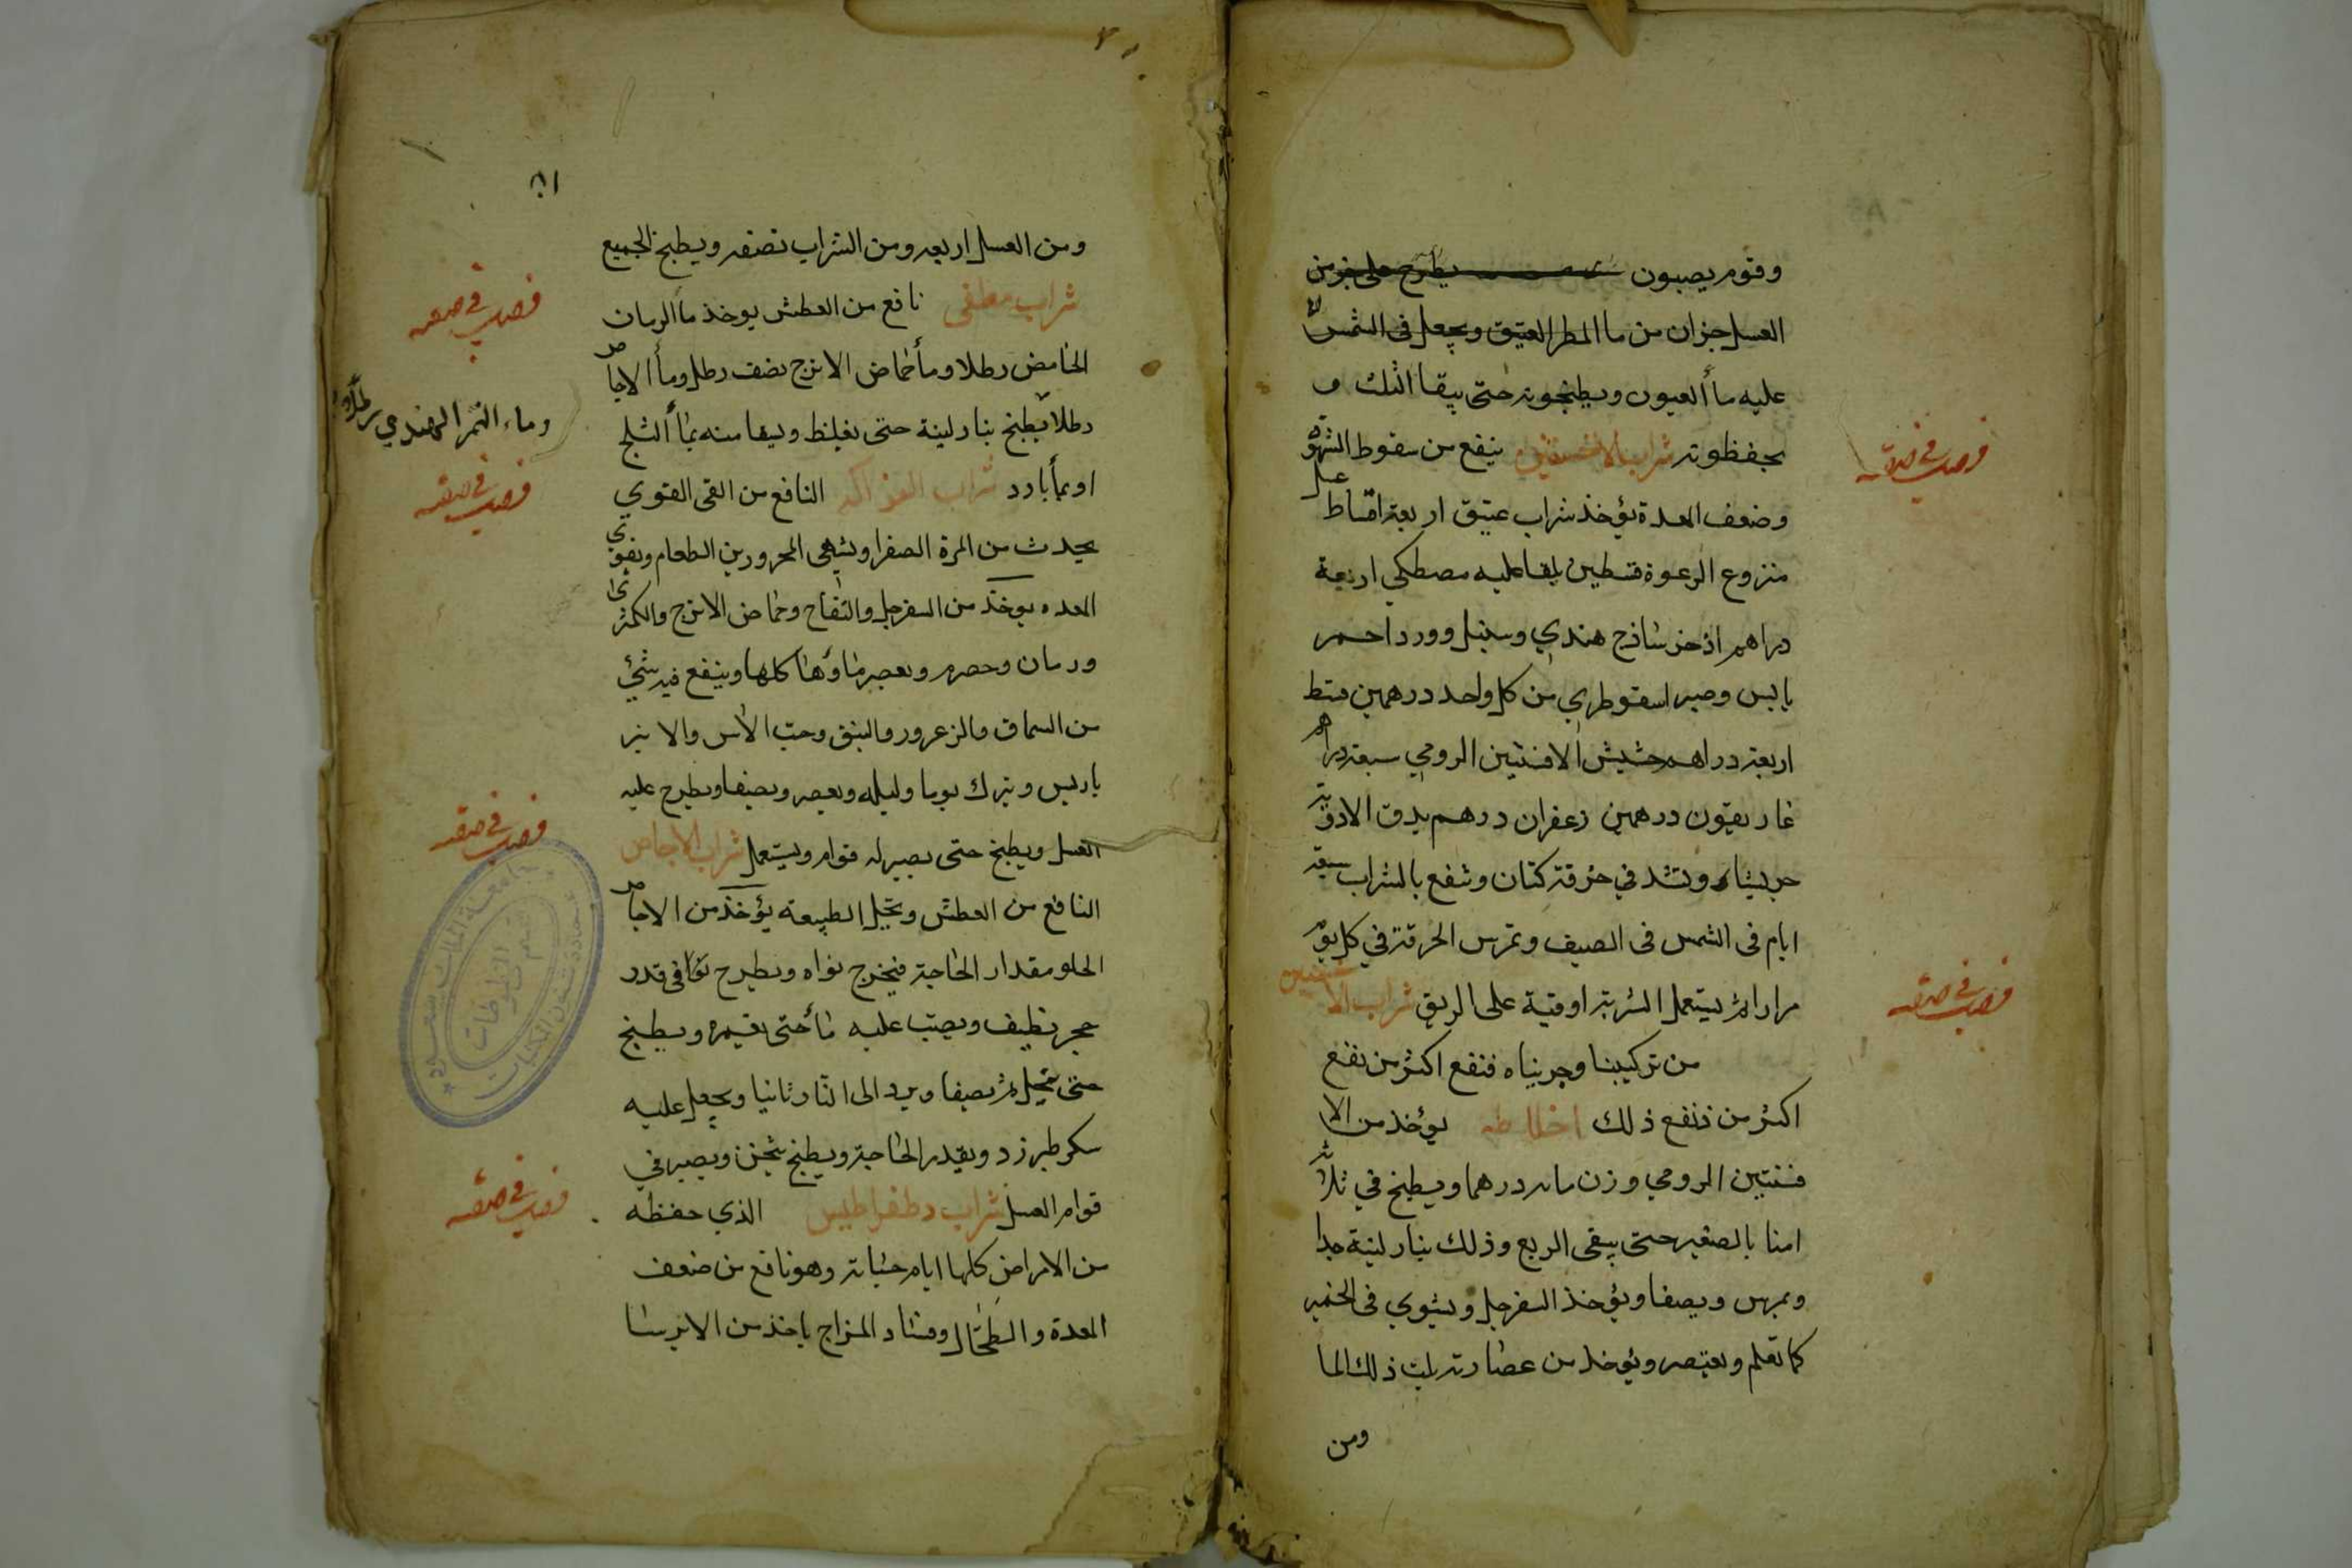 وقوم يصبون يطرح على جزء من
العسل جزان من ما المطر العتيق ويجعل في الشمس
عليه مأ العيون ويطبخونه حتى يبقا الثلث و
يحفظونه شراب الافسنتين ينفع من سقوط الشهوة
وضعف المعدة يؤخذ شراب عتيق اربعة اقساط عسل
منزوع الرغوة قسطين يلقا عليه مصطكي اربعة
دراهم اذخر شاذج هندي وسنبل وورد احمر
يابس وصبر اسقوطري من كل واحد درهمين قسط
اربعة دراهم حشيش الافسنتين الرومي سبعة دراهم
غاريقون درهمين زعفران درهم يدق الادوية
جريشا وتشد في خرقة كتان وتنقع بالشراب سبعة
ايام في الشمس في الصيف وتمرس الخرقة في كل يوم
مرارا ثم يستعمل الشربة اوقية على الريق شراب الافسنتين
من تركيبنا وجربناه فنفع اكثر من نفع
اكثر من نفع ذلك اخلاطه يؤخذ من الا
فسنتين الرومي وزن مايه درهما ويطبخ في ثلاثة
امنا بالصغير حتى يبقى الربع وذلك بنار لينة جدا
ويمرس ويصفا ويؤخذ السفرجل ويشوي في الخمير
كما تعلم ويعتصر ويؤخذ من عصارته ثلث ذلك الما
ومن
فصل في صفة
فصل في صفة
٨١
ومن العسل اربعه ومن الشراب نصفه ويطبخ الجميع
شراب مطفي نافع من العطش يوخذ ما الرمان
الحامض رطلا ومأ حماض الاترج نصف رطل ومأ الاجاص
رطلا يطبخ بنار لينة حتى يغلظ ويسقا منه بمأ الثلج
او بمأ بارد شراب الفواكه النافع من القى القوي
يحدث من المرة الصفرا ويشهى المحرورين الطعام ويقوي
المعده يوخذ من السفرجل والتفاح وحماض الاترج والكمثرى
ورمان وحصرم ويعصر ماؤها كلها وينقع فيه شئ
من السماق والزعرور والنبق وحب الاس والانبر
باريس ويترك يوما وليله ويعصر ويصفا ويطرح عليه
العسل ويطبخ حتى يصير له قوام ويستعمل شراب الاجاص
النافع من العطش ويحل الطبيعة يؤخذ من الاجاص
الحلو مقدار الحاجة فيخرج نواه ويطرح في قدر
حجر نظيف ويصب عليه مأ حتى يغمره ويطبخ
حتى ينحل ثم يصفا ويرد الى النار ثانيا ويجعل عليه
سكر طبرزد وبقدر الحاجة ويطبخ ويصير في
قوام العسل شراب دطقراطيس الذي حفظه
من الامراض كلها ايام حياته وهو نافع من ضعف
المعدة والطحال وفساد المزاج ياخذ من الايرسا
فصل في صفة
وماء التمر الهندي رطلا
فصل في صفة
فصل في صفة
فصل في صفة
جامعة الملك سعود
عمادة شئون المكتبات
قسم المخطوطات